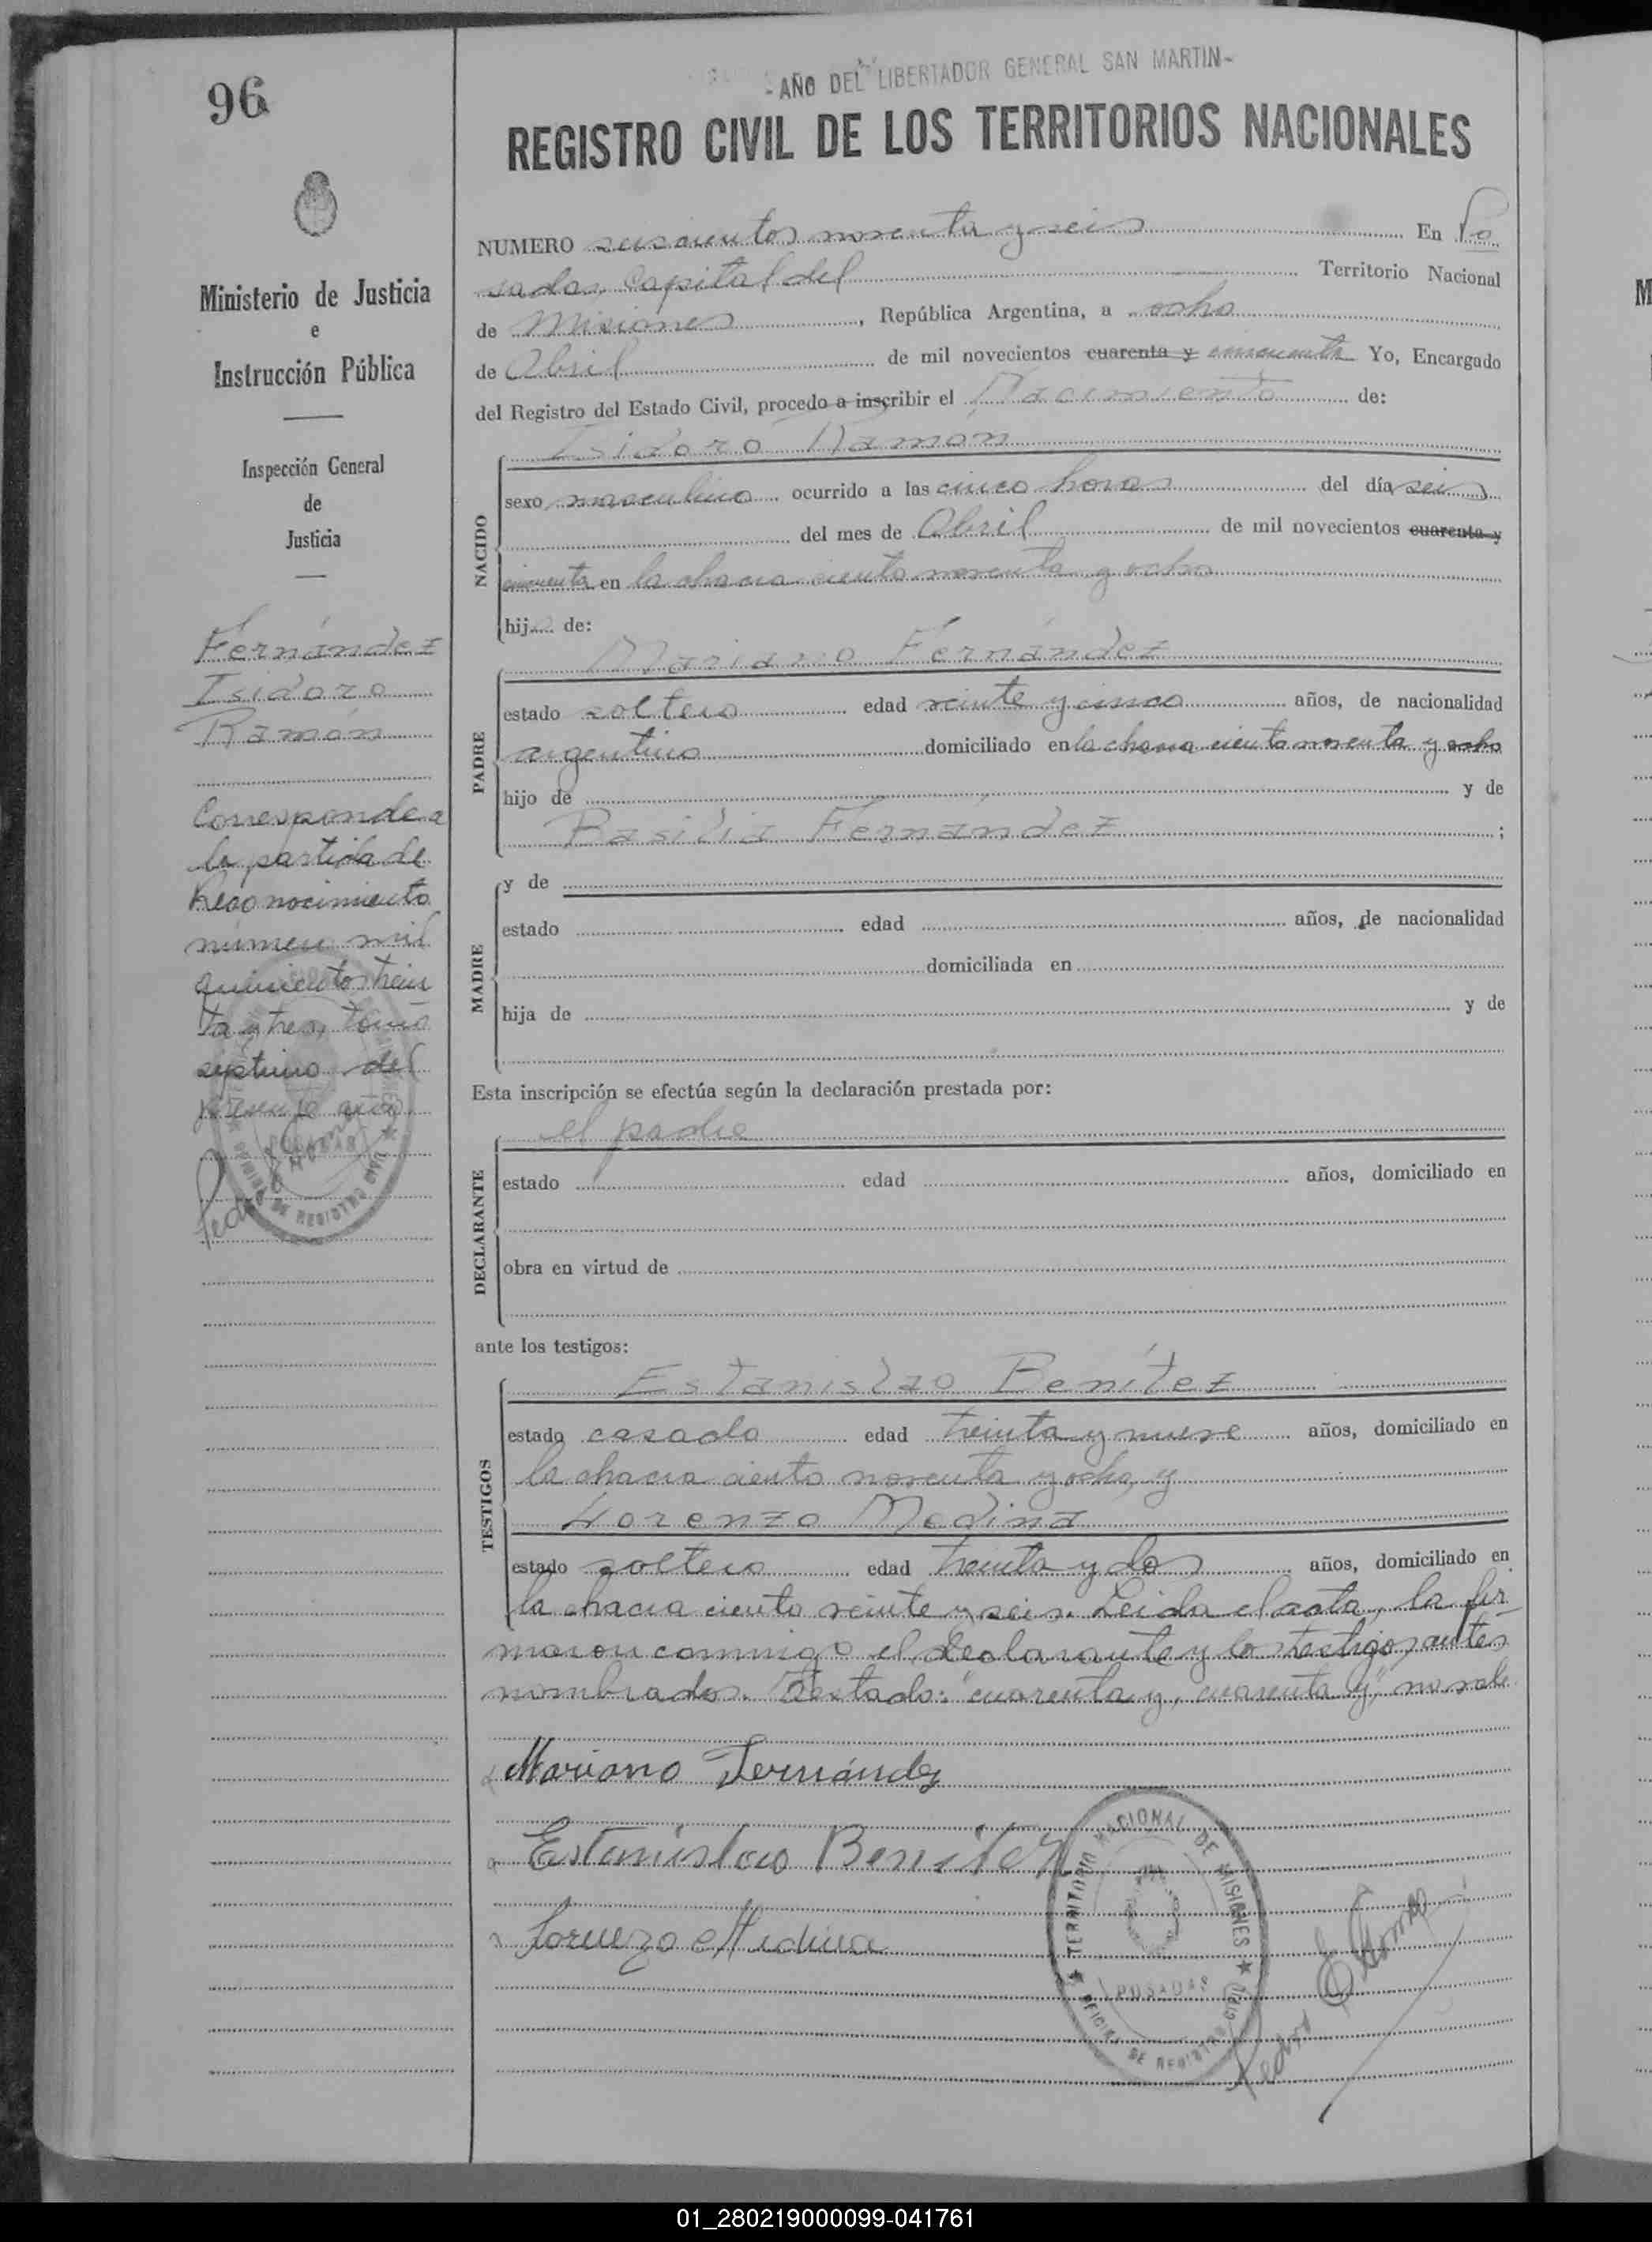 96
AÑO DEL LIBERTADOR GENERAL SAN MARTIN-
REGISTRO CIVIL DE LOS TERRITORIOS NACIONALES
Ministerio de Justicia
e
Instrucción Pública
Inspección General
de
Justicia
Fernández
Isidoro
Ramón
Corresponde a
la partida de
Reconocimiento
número mil
quinientos trein
ta y tres, tomo
séptimo del
presente año.
NUMERO seiscientos noventa y seis En Po
sadas, Capital del Territorio Nacional
de Misiones, República Argentina, a ocho
de Abril de mil novecientos cuarenta y cincuenta Yo, Encargado
del Registro del Estado Civil, procedo a inscribir el Nacimiento de:
Isidoro Ramón
NACIDO
sexo masculino ocurrido a las cinco horas del día seis
del mes de Abril de mil novecientos cuarenta y
cincuenta en la chacra ciento noventa y ocho
hijo de:
Mariano Fernández
PADRE
estado soltero edad veinte y cinco años, de nacionalidad
argentino domiciliado en la chacra ciento noventa y ocho
hijo de y de
Basilia Fernández ;
MADRE
y de
estado edad años, de nacionalidad
domiciliada en
hija de y de
Esta inscripción se efectúa según la declaración prestada por:
el padre
DECLARANTE
estado edad años, domiciliado en
obra en virtud de
ante los testigos:
Estanislao Benítez
TESTIGOS
estado casado edad treinta y nueve años, domiciliado en
la chacra ciento noventa y ocho, y
Lorenzo Medina
estado soltero edad treinta y dos años, domiciliado en
la chacra ciento veinte y seis. Leida el acta, la fir
maron conmigo el declarante y los testigos antes
nombrados. Testado: "cuarenta y, cuarenta y" no vale
Mariano Fernández
Estanislao Benitez
Lorenzo Medina
TERRITORIO NACIONAL DE MISIONES
POSADAS
OFICINA DE REGISTRO CIVIL
01_280219000099-041761